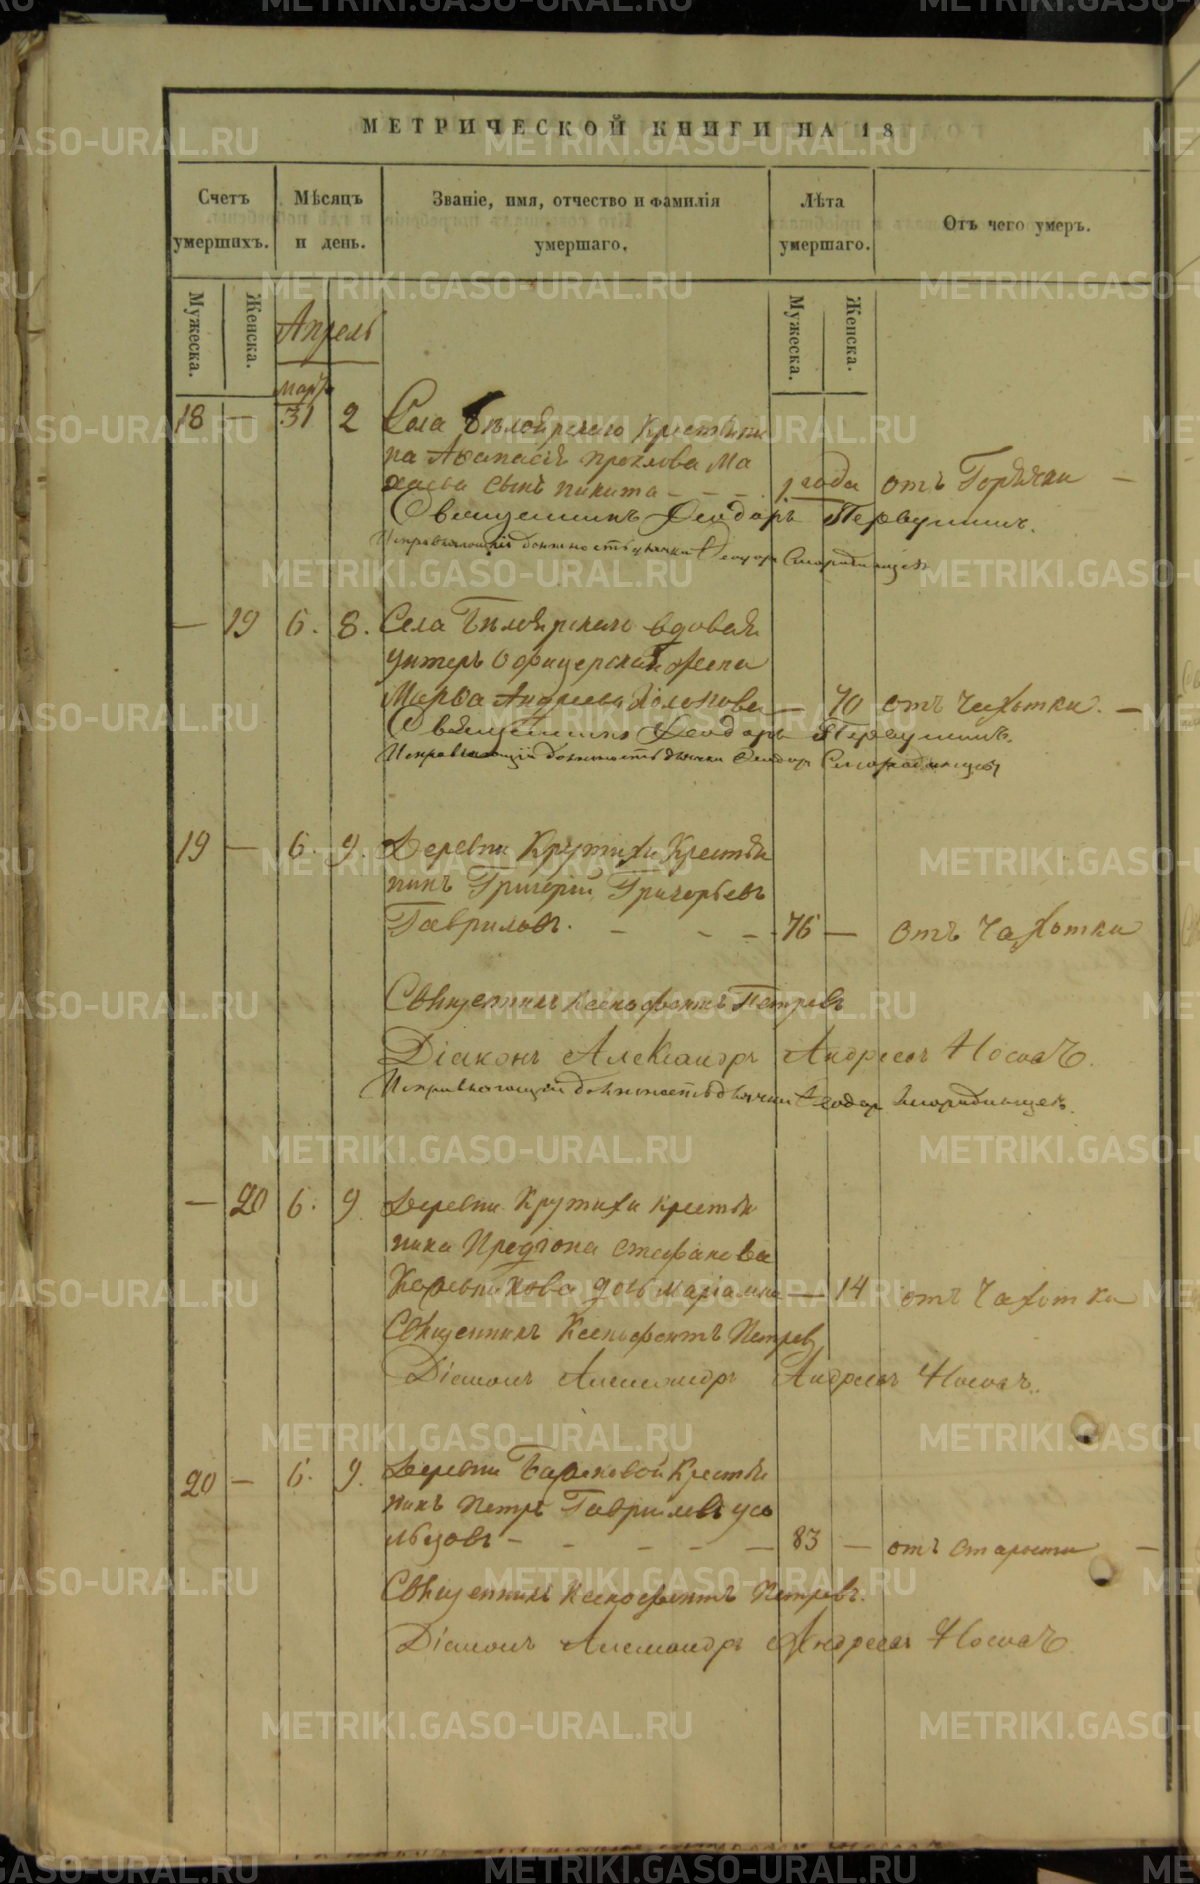 МЕТРИЧЕСКОЙ КНИГИ НА 18
Счетъ умершихъ.
Мѣсяцъ и день.
Званіе, имя, отчество и фамилія умершаго.
Лѣта умершаго.
Отъ чего умеръ.
Мужеска.
Женска.
Мужеска.
Женска.
Апрель
мартъ
18 — 31 2 Села Бѣлоярскаго крестьяни
на Аѳанасія
сынъ Никита - - - 1 года отъ Горячки —
Священникъ Ѳеодоръ Первушинъ.
Исправляющій должность дьячка Ѳеодоръ Смородинцевъ
— 19 6. 8. Села Бѣлоярскаго вдовая
унтеръ офицерская жена
Марѳа Андреева — 70 отъ чахотки. —
Священникъ Ѳеодоръ Первушинъ.
Исправляющій должность дьячка Ѳеодоръ Смородинцевъ
19 — 6. 9. Деревни Крутихи Крестья
нинъ Григорій Григорьевъ
Гавриловъ. - - - 76 — отъ Чахотки
Священникъ Ксенофонтъ Петровъ
Діаконъ Александръ Андреевъ Носовъ.
Исправляющій должность дьячка Ѳеодоръ Смородинцевъ.
— 20 6. 9 Деревни Крутихи крестья
нина Стефанова
дочь Маріамна — 14 отъ Чахотки
Священникъ Ксенофонтъ Петровъ
Діаконъ Александръ Андреевъ Носовъ.
20 — 6. 9. Деревни Крестья
нинъ Петръ Гавриловъ
- - - - — 83 — отъ старости —
Священникъ Ксенофонтъ Петровъ.
Діаконъ Александръ Андреевъ Носовъ
METRIKI.GASO-URAL.RU